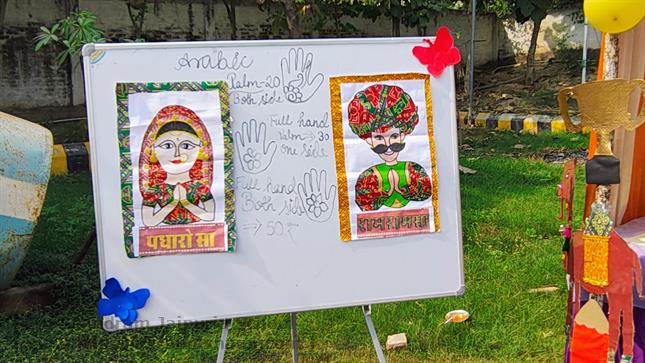 Arabic
Palm - 20
Both side
Full hand
Palm → 30
one side
Full hand
Both side
⇒ 50 ₹
पधारो सा
राम राम सा